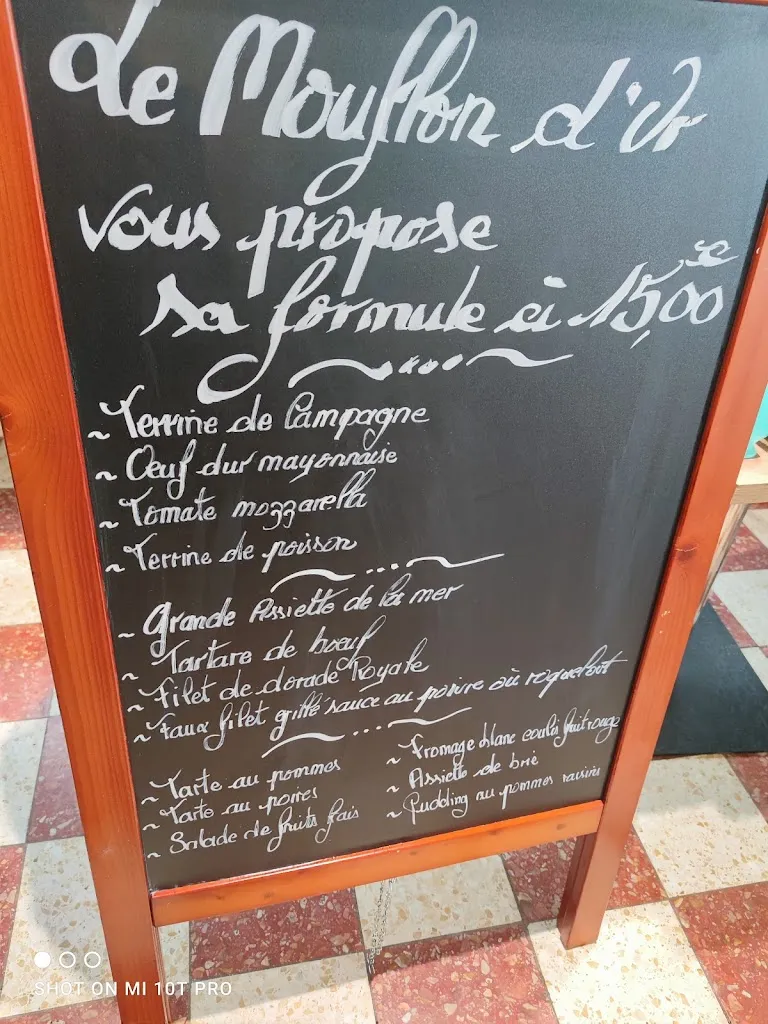 Le Mouflon d'Or
vous propose
sa formule à 15,00€
~ Terrine de Campagne
~ Oeuf dur mayonnaise
~ Tomate mozzarella
~ Terrine de poisson
~ Grande Assiette de la mer
~ Tartare de boeuf
~ Filet de dorade Royale
~ Faux filet grillé sauce au poivre où roquefort
~ Tarte au pommes
~ Tarte au poires
~ Salade de fruits frais
~ Fromage blanc coulis fruit rouge
~ Assiette de brie
~ Pudding au pommes raisins
SHOT ON MI 10T PRO